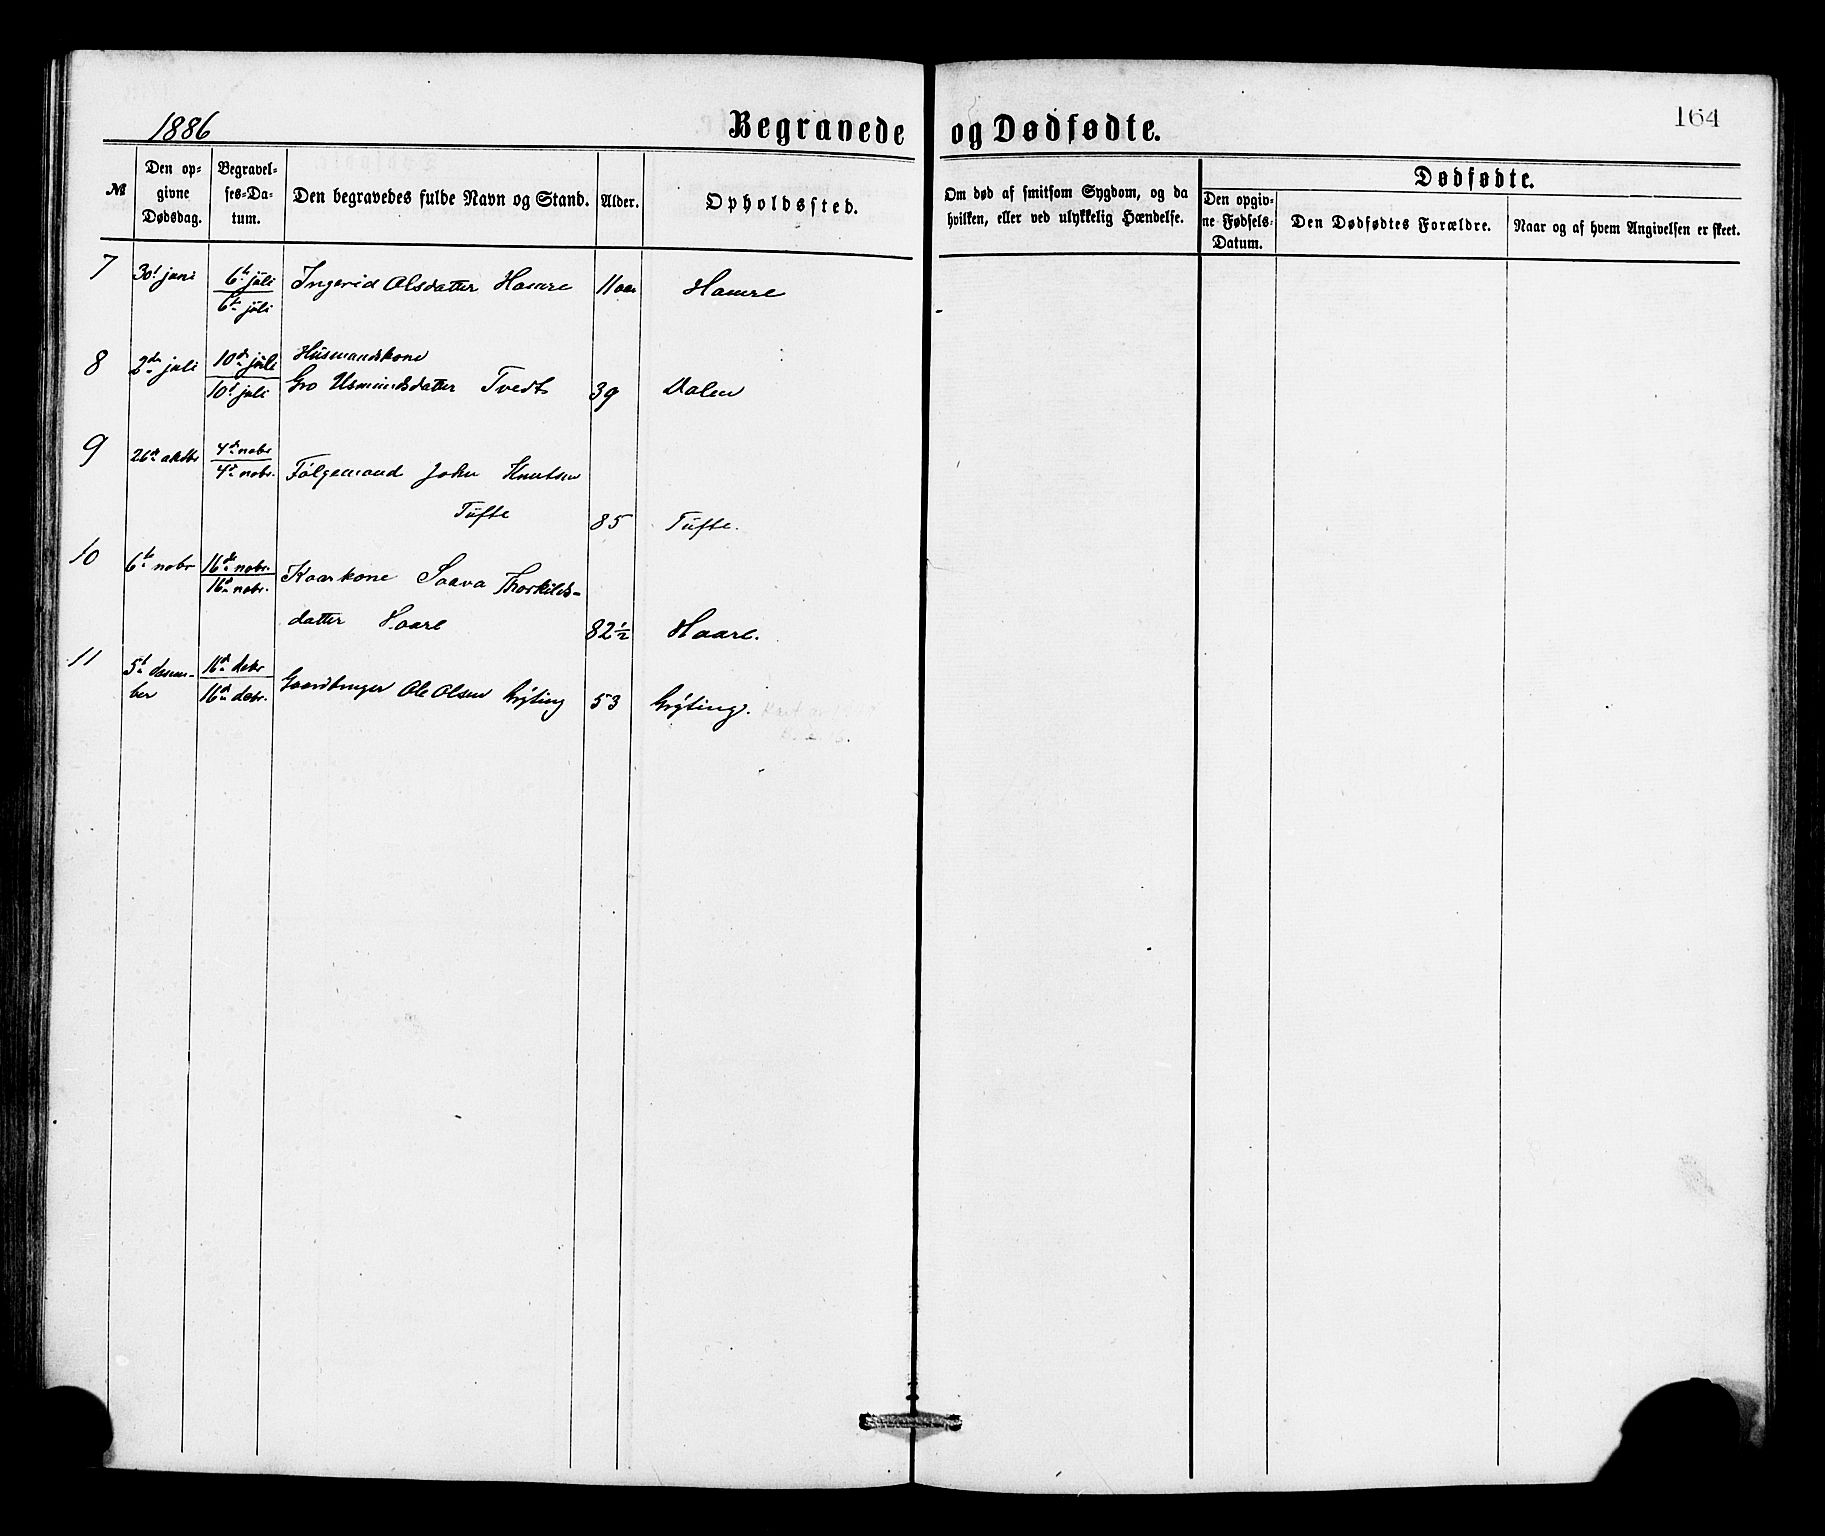 1886
Begravede og Dødfødte.
164
№
Den op-
givne
Dødsdag.
Begravel-
ses-Da-
tum.
Den begravedes fulde Navn og Stand.
Alder.
Opholdssted.
Om død af smitsom Sygdom, og da
hvilken, eller ved ulykkelig Hændelse.
Dødfødte.
Den opgiv-
ne Fødsels-
Datum.
Den Dødfødtes Forældre.
Naar og af hvem Angivelsen er skeet.
7 30t juni 6te juli Ingerid Olsdatter Haure 11 aar Haure
6te juli
8 2den juli 10de juli Husmandskone
10d juli Gro Asmundsdatter Tvedt 39 Dalen
9 26de oktbr 4de nobr
4de nobr. Følgemand John Knutsen
Tufte 85 Tufte.
10 6te nobr 16de nobr. Kaarkone Saava Thorkilds-
16de nobr.
datter Haare 82 1/2 Haare.
11 5te decem- 16de debr
ber 16de debr. Gaardbruger Ole Olsen Grÿting 53 Grÿting.